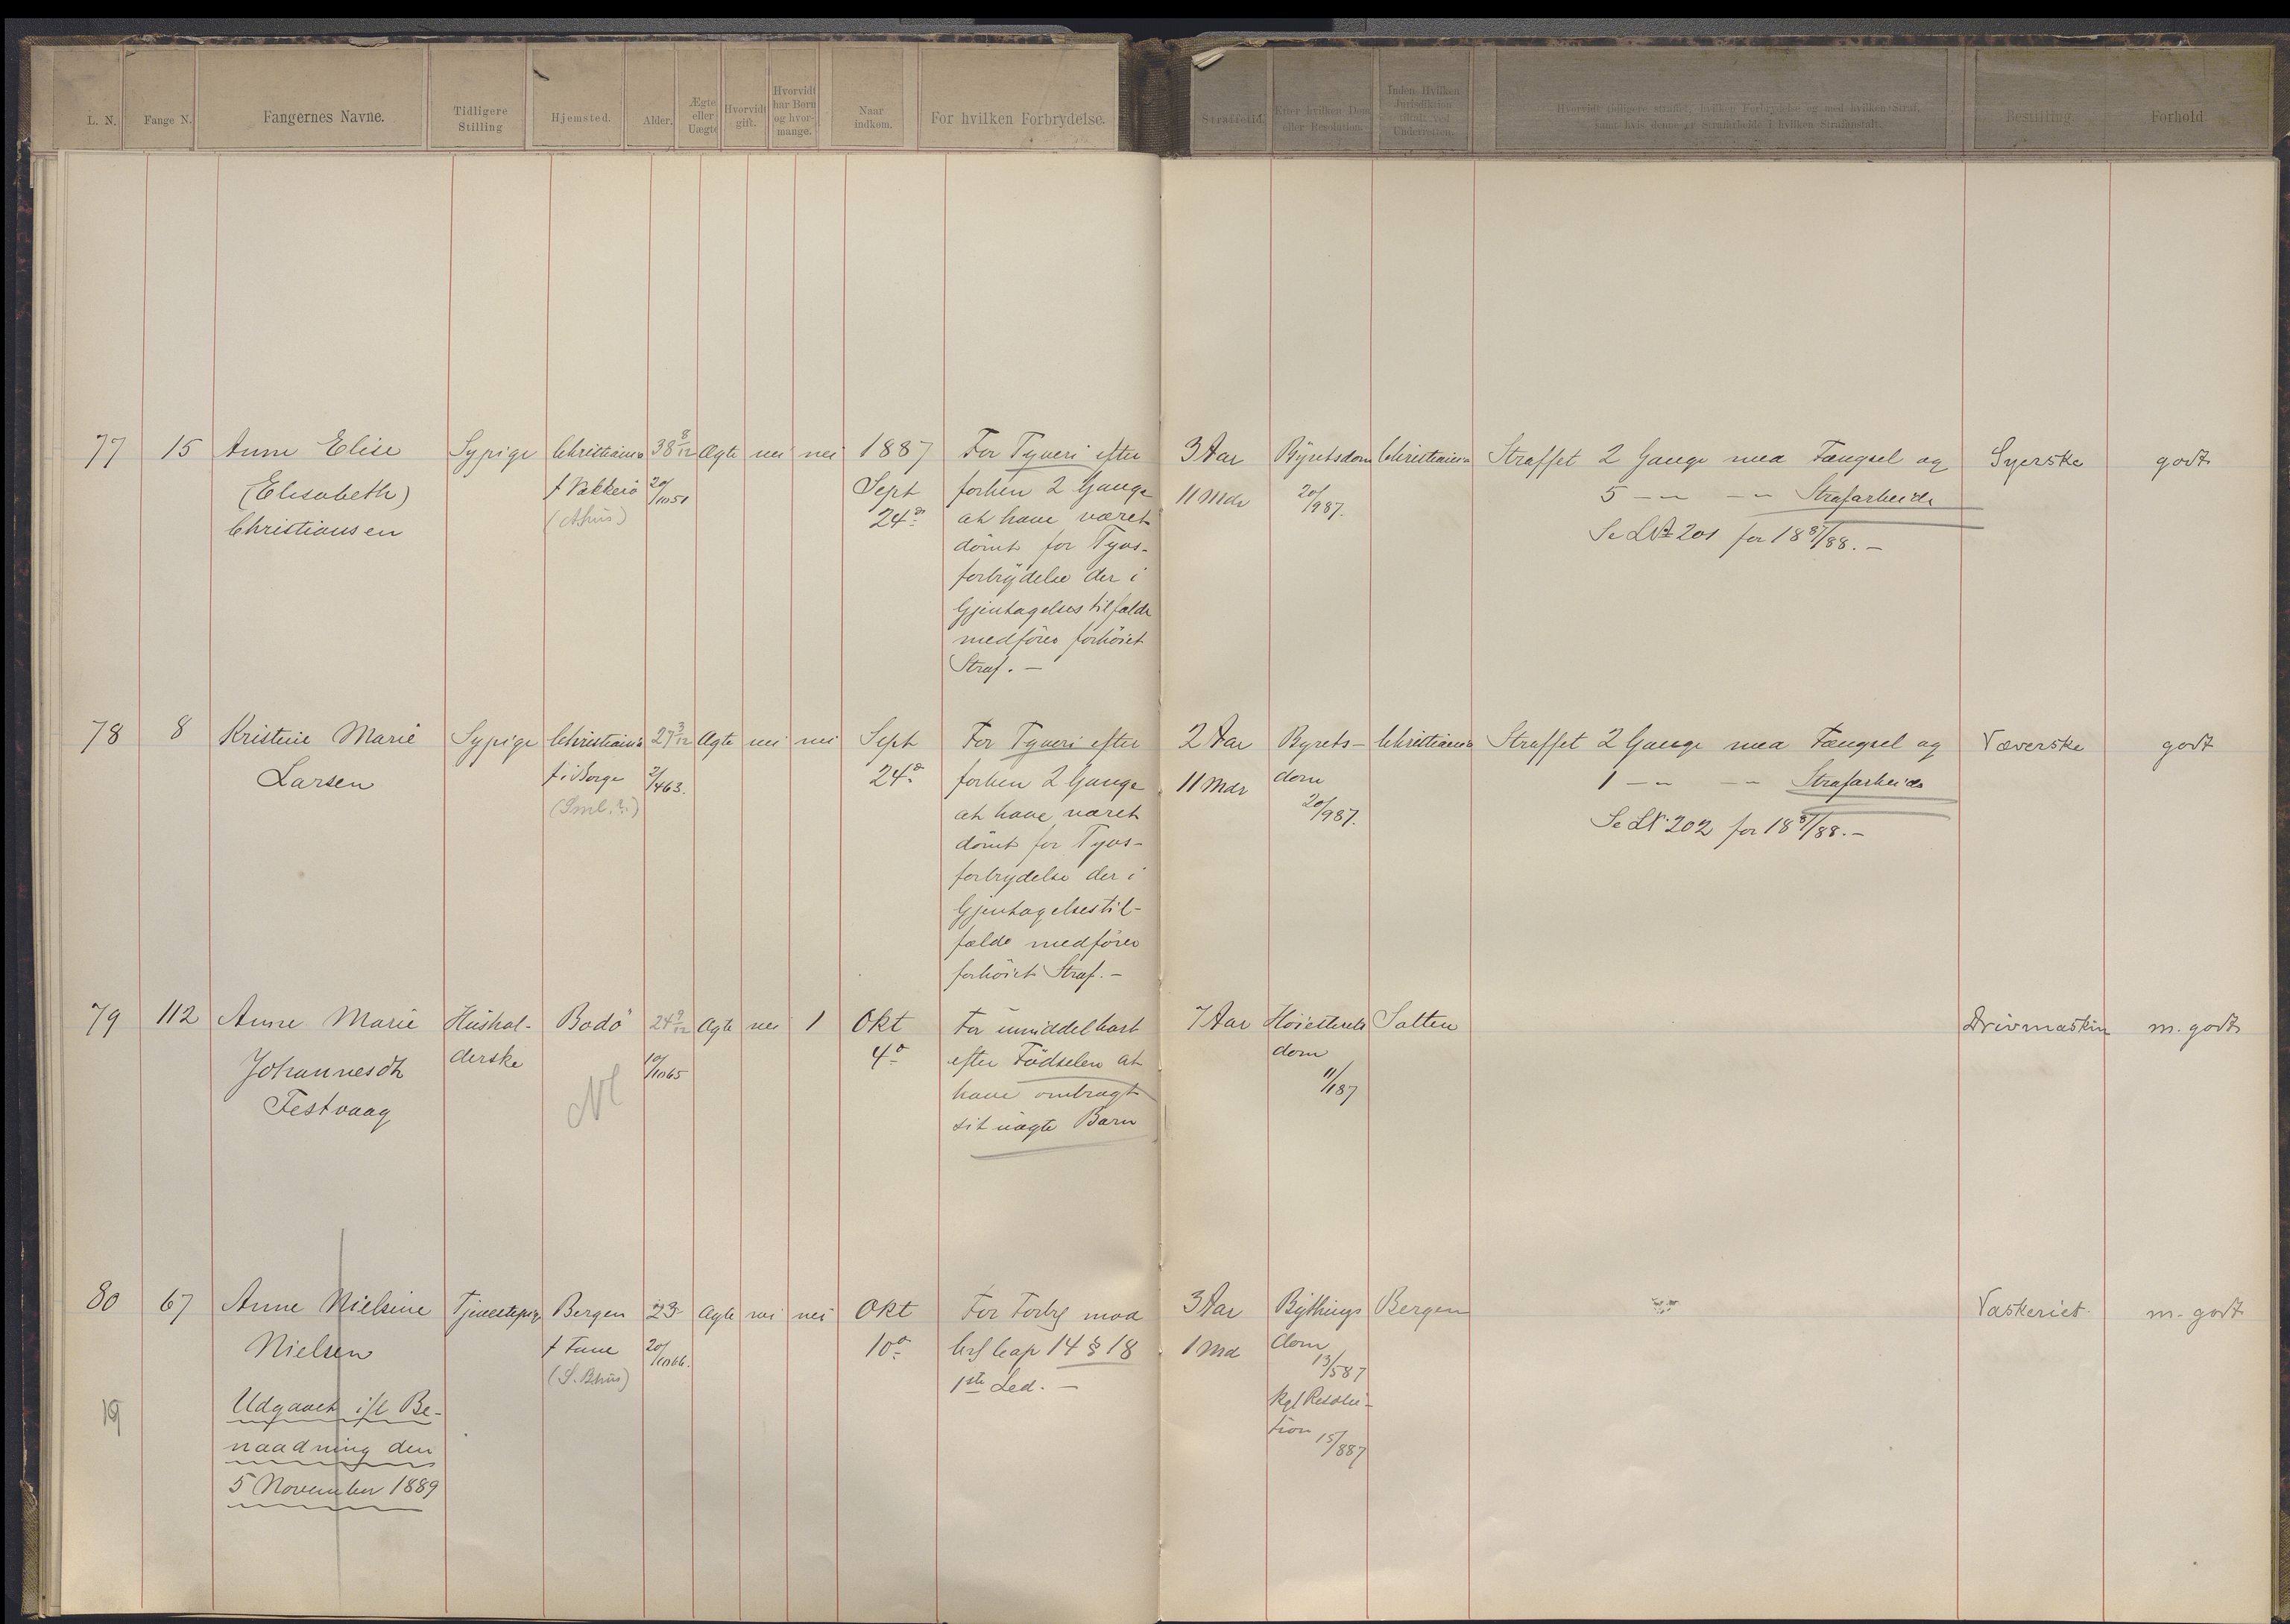 L. N.
Fange N.
Fangernes Navne.
Tidligere
Stilling
Hjemsted.
Alder.
Ægte
eller
Uægte
Hvorvidt
gift.
Hvorvidt
har Børn
og hvor-
mange.
Naar
indkom.
For hvilken Forbrydelse.
Straffetid.
Efter hvilken Dom
eller Resolution.
Inden Hvilken
Jurisdiktion
tiltalt ved
Underretten.
Hvorvidt tidligere straffet, hvilken Forbrydelse og med hvilken Straf,
samt hvis denne er Strafarbeide i hvilken Strafanstalt.
Bestilling
Forhold
77
15
Anne Elise
(Elisabeth)
Christiansen
Sypige
Christiania
f Vækkerö
(Ahus)
38 8/12
20/1051
Ægte
nei
nei
1887
Sept
24de
For Tyveri efter
forhen 2 Gange
at have været
dömt for Tyvs-
forbrydelse der i
Gjentagelsestilfælde
medförer forhöiet
Straf. —
3 Aar
11 Mdr
Byretsdom
20/987.
Christiania
Straffet 2 Gange med Fængsel og
5 -"- -"- Strafarbeide
Se LN 201 for 1887/88. —
Syerske
godt
78
8
Kristine Marie
Larsen
Sypige
Christiania
f i Borge
(Sml. ?)
27 3/12
2/463.
Ægte
nei
nei
Sept
24de
For Tyveri efter
forhen 2 Gange
at have været
dömt for Tyvs-
forbrydelse der i
Gjentagelsestil-
fælde medförer
forhöiet Straf. —
2 Aar
11 Mdr
Byrets-
dom
20/987.
Christiania
Straffet 2 Gange med Fængsel og
1 -"- -"- Strafarbeide
Se LN 202 for 1887/88. —
Væverske
godt
79
112
Anne Marie
Johannesdtr
Festvaag
Hushol-
derske
Bodö
Nl
24 9/12
10/1065
Ægte
nei
1
Okt
4de
For umiddelbart
efter Födselen at
have ombragt
sit uægte Barn
7 Aar
Höiesterets
dom
11/187
Salten
Drivmaskin
m. godt
80
67
Anne Nielsine
Nielsen
Udgaaet ifl. Be-
naadning den
5 November 1889
Tjenestepige
Bergen
f Tune
(S. Bhus)
23
20/1066.
Ægte
nei
nei
Okt
10de
For Forbr mod
Crl Cap 14 § 18
1ste Led. —
3 Aar
1 Md
Bythings
dom
13/587
kgl Resolu-
tion
15/887
Bergen
Vaskeriet
m. godt